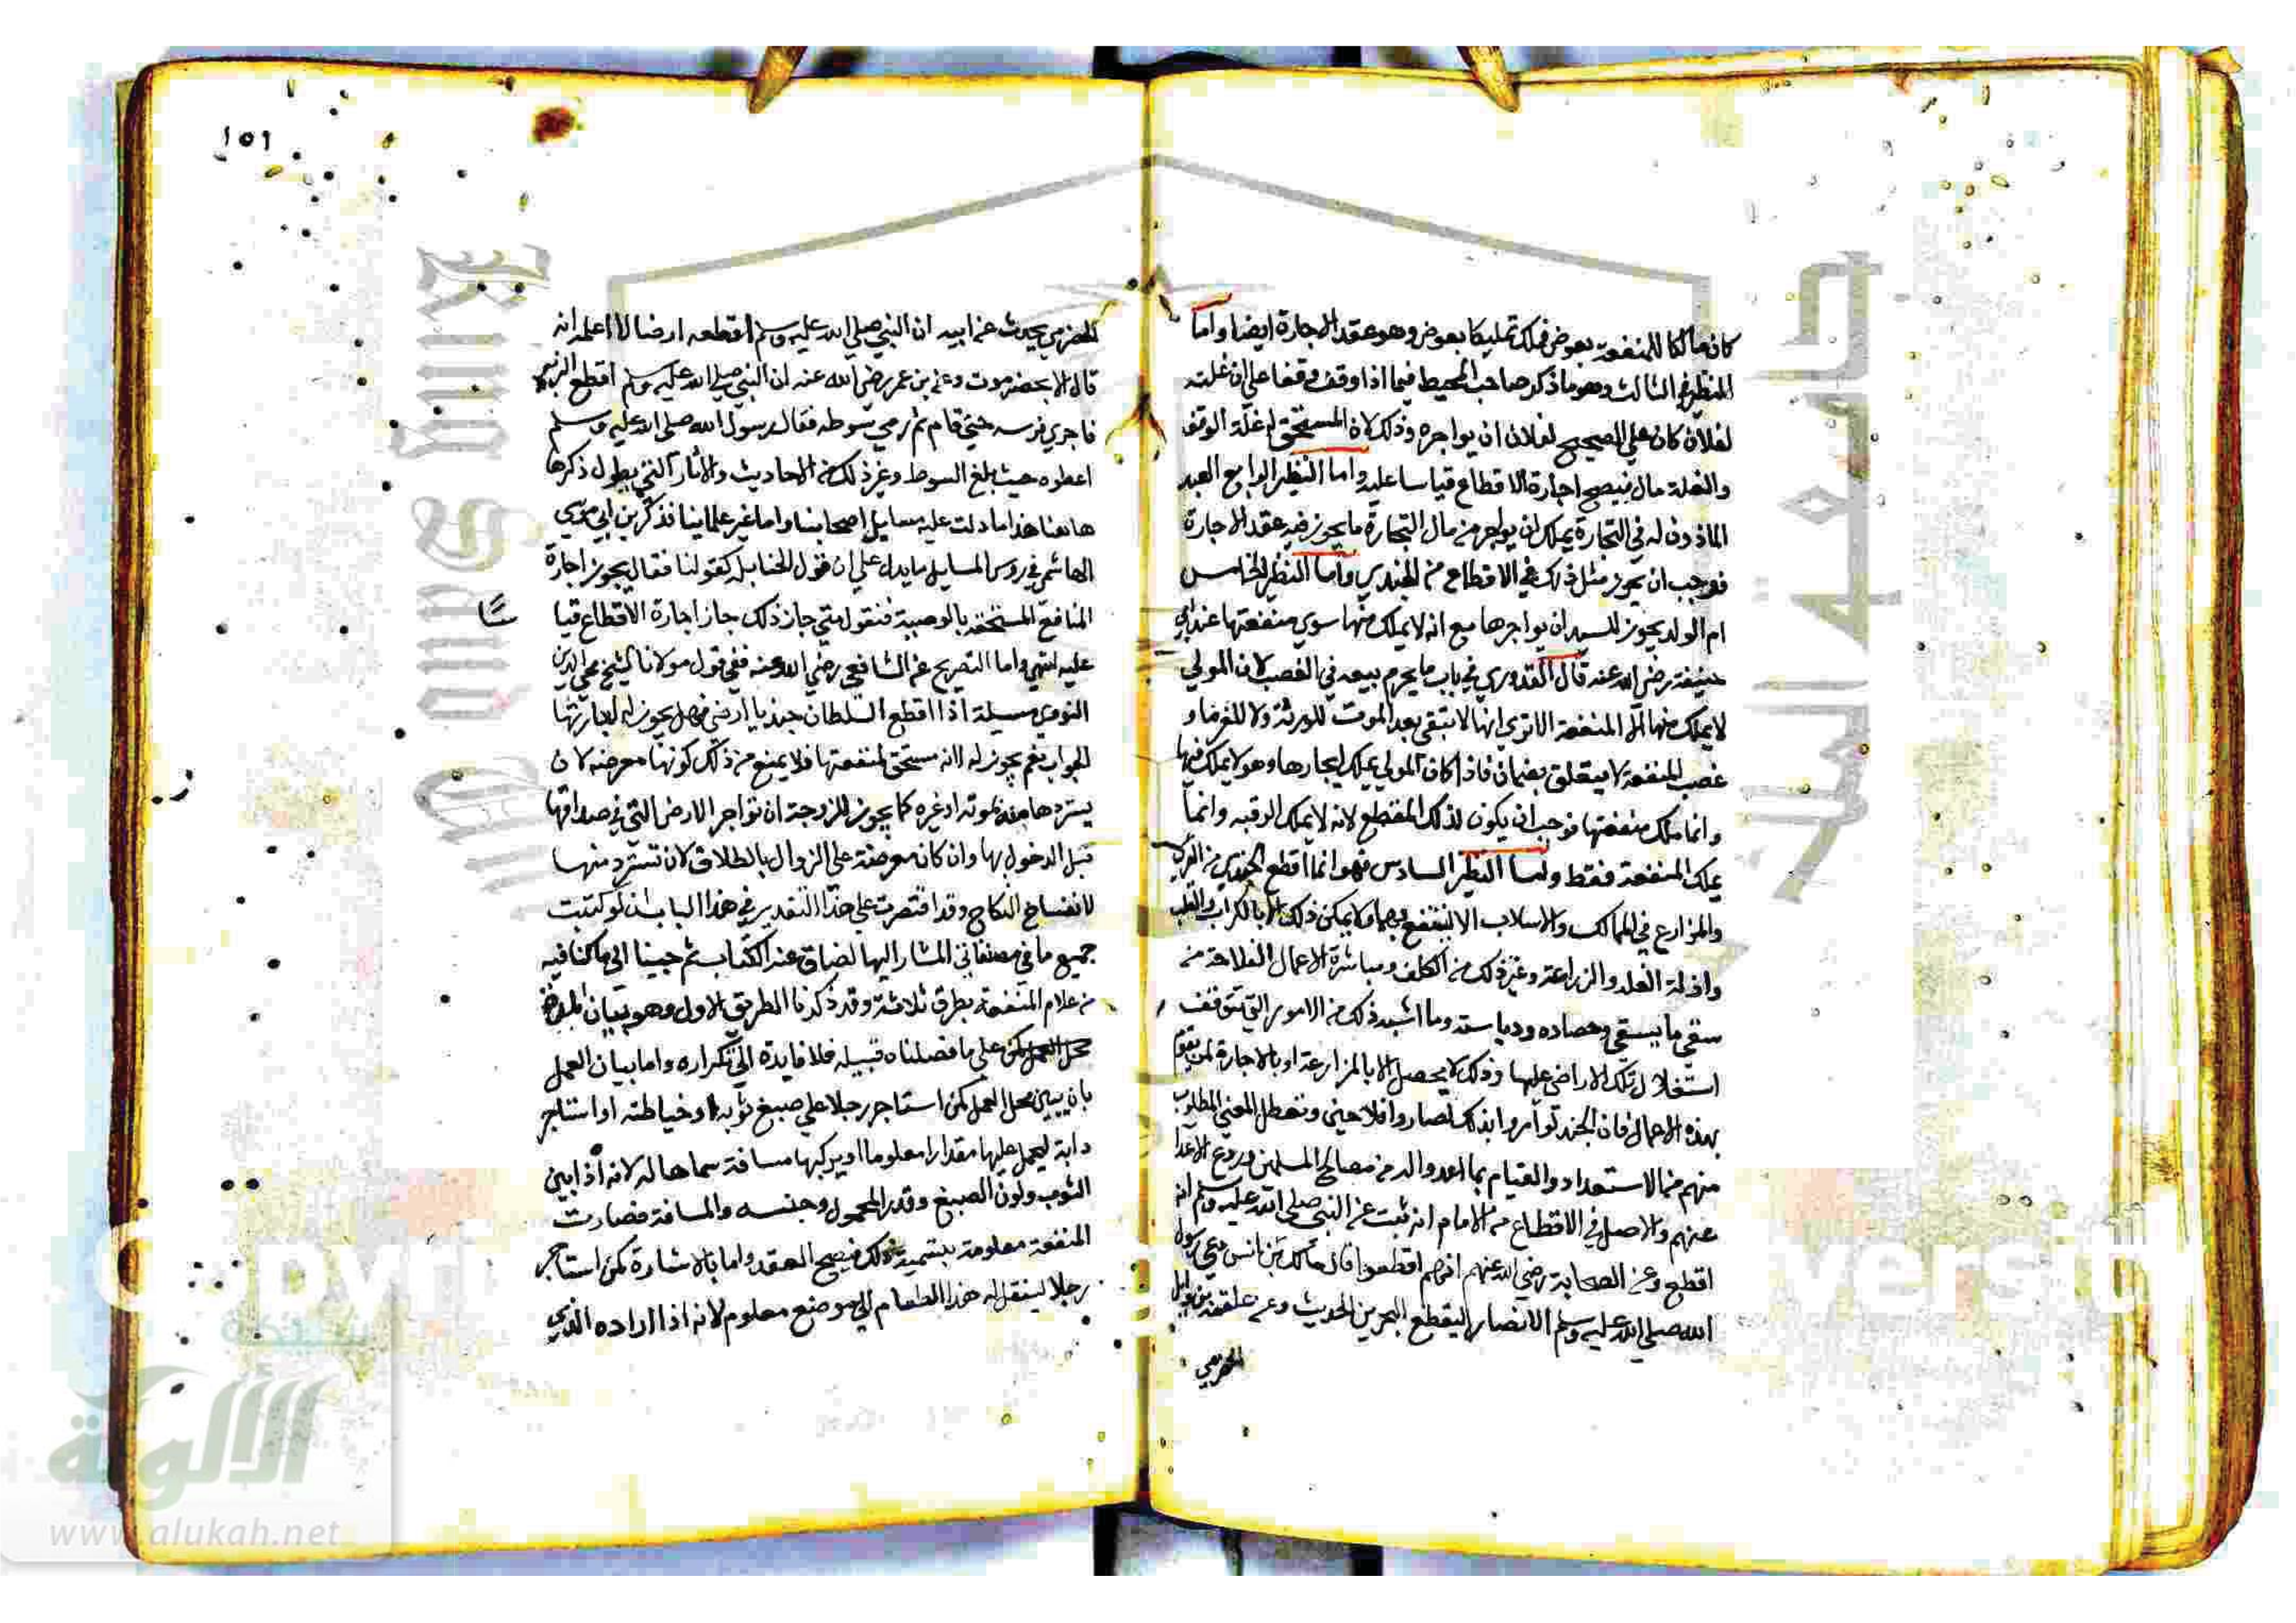 كان مالكا للمنفعة بعوض فملك تمليكا بعوض وهو عقد الاجارة ايضا واما
النظير الثالث وهو ما ذكر صاحب المحيط فيما اذا وقف وقفا على ان غلته
لفلان كان على الصحيح لفلان ان يواجره وذلك لان المستحق له غلة الوقف
والغلة مال فيصح اجارة الاقطاع قياسا عليه واما النظير الرابع العبد
الماذون له في التجارة يملك ان يواجر من مال التجارة ما يجوز فيه عقد الاجارة
فوجب ان يجوز مثل ذلك في الاقطاع من الجندي واما النظير الخامس
ام الولد يجوز للسيد ان يواجرها مع انه لا يملك منها سوى منفعتها عند ابي
حنيفة رضي الله عنه قال القدوري في باب ما يحرم بيعه في الغصب لان المولي
لا يملك منها الا المنفعة الا تري انها لا تبقى بعد الموت للورثة ولا للغرما و
غصب المنفعة لا يتعلق بضمان فاذا كان المولي يملك ايجارها وهو لا يملك فيها
وانما ملك منفعتها فوجب ان يكون لذلك المقطع لانه لا يملك الرقبه وانما
يملك المنفعة فقط واما النظير السادس فهو انما اقطع الجندي من القري
والمزارع في الممالك والاسلاب الا لينتفع بها ولا يمكن ذلك الا بالكراب والتقليب
والزراعة وغير ذلك من الكلف ومباشرة الاعمال الفلاحة من
سقي ما يسقي وحصاده ودياسته وما اشبه ذلك من الامور التي تتوقف
استغلال تلك الاراضي عليها وذلك لا يحصل الا بالمزارعة او بالاجارة لمن يقوم
بهذه الاعمال فان الجند لو امروا بذلك لصاروا فلاحين وتعطل المعني المطلوب
منهم من الاستعداد والقيام بما اعدوا له من مصالح المسلمين وردع الاعدا
عنهم والاصل في الاقطاع من الامام انه ثبت عن النبي صلي الله عليه وسلم انه
اقطع وعن الصحابة رضي الله عنهم انهم اقطعوا قال مالك بن انس دعي رسول
الله صلي الله عليه وسلم الانصار ليقطع البحرين الحديث وعن علقمة بن وايل
الحضرمي
١٥١
الحضرمي يحدث عن ابيه ان النبي صلي الله عليه وسلم اقطعه ارضا لا اعلمه انه
قال الا بحضرموت وعن بن عمر رضي الله عنه ان النبي صلي الله عليه وسلم اقطع الزبير
فاجري فرسه حتي قام ثم رمي سوطه فقال رسول الله صلي الله عليه وسلم
اعطوه حيث بلغ السوط وغير ذلك من الاحاديث والاثار التي يطول ذكرها
هاهنا هذا ما دلت عليه مسايل اصحابنا واما غير علماينا فذكر بن ابي موسي
الهاشمي في روس المسايل ما يدل علي ان قول الحنابله كقولنا فقال يجوز اجارة
المنافع المستحقه بالوصية فنقول متي جاز ذلك جاز اجارة الاقطاع قيا
سًا
عليه انتهي واما التصريح عن الشافعي رضي الله عنه ففي قول مولانا الشيخ محي الدين
النووي مسيلة اذا اقطع السلطان جنديا ارضا فهل يجوز له اجارتها
الجواب نعم يجوز له لانه مستحق لمنفعتها فلا يمنع من ذلك كونها معرضه لان
يستردها منه لموته او غيره كما يجوز للزوجة ان تواجر الارض التي في صداقها
قبل الدخول بها وان كان معرضة علي الزوال بالطلاق لان تسترد منها
لانفساخ النكاح وقد اقتصرت علي هذا التقدير في هذا الباب اذ لو كتبت
جميع ما في مصنفاتي المشار اليها لضاق عنه الكتاب ثم جينا الي ما كنا فيه
من علام المنفعة بطرق ثلاثة وقد ذكرنا الطريق الاول وهو بيان
محل العمل علي ما فصلناه قبيله فلا فايدة الي تكراره واما بيان العمل
بان يبين محل العمل كمن استاجر رجلا علي صبغ ثوبه او خياطته او استاجر
دابة ليحمل عليها مقدارا معلوما او يركبها مسافة سماها له لانه اذا بين
الثوب ولون الصبغ وقدر المحمول وجنسه والمسافة فصارت
المنفعة معلومة بتسمية ذلك فيصح العقد واما بالاشارة كمن استاجر
رجلا لينقل له هذا الطعام الي موضع معلوم لانه اذا اراده الذي
جامعة الملك سعود
King Saud University
شبكة
الألوكة
www.alukah.net